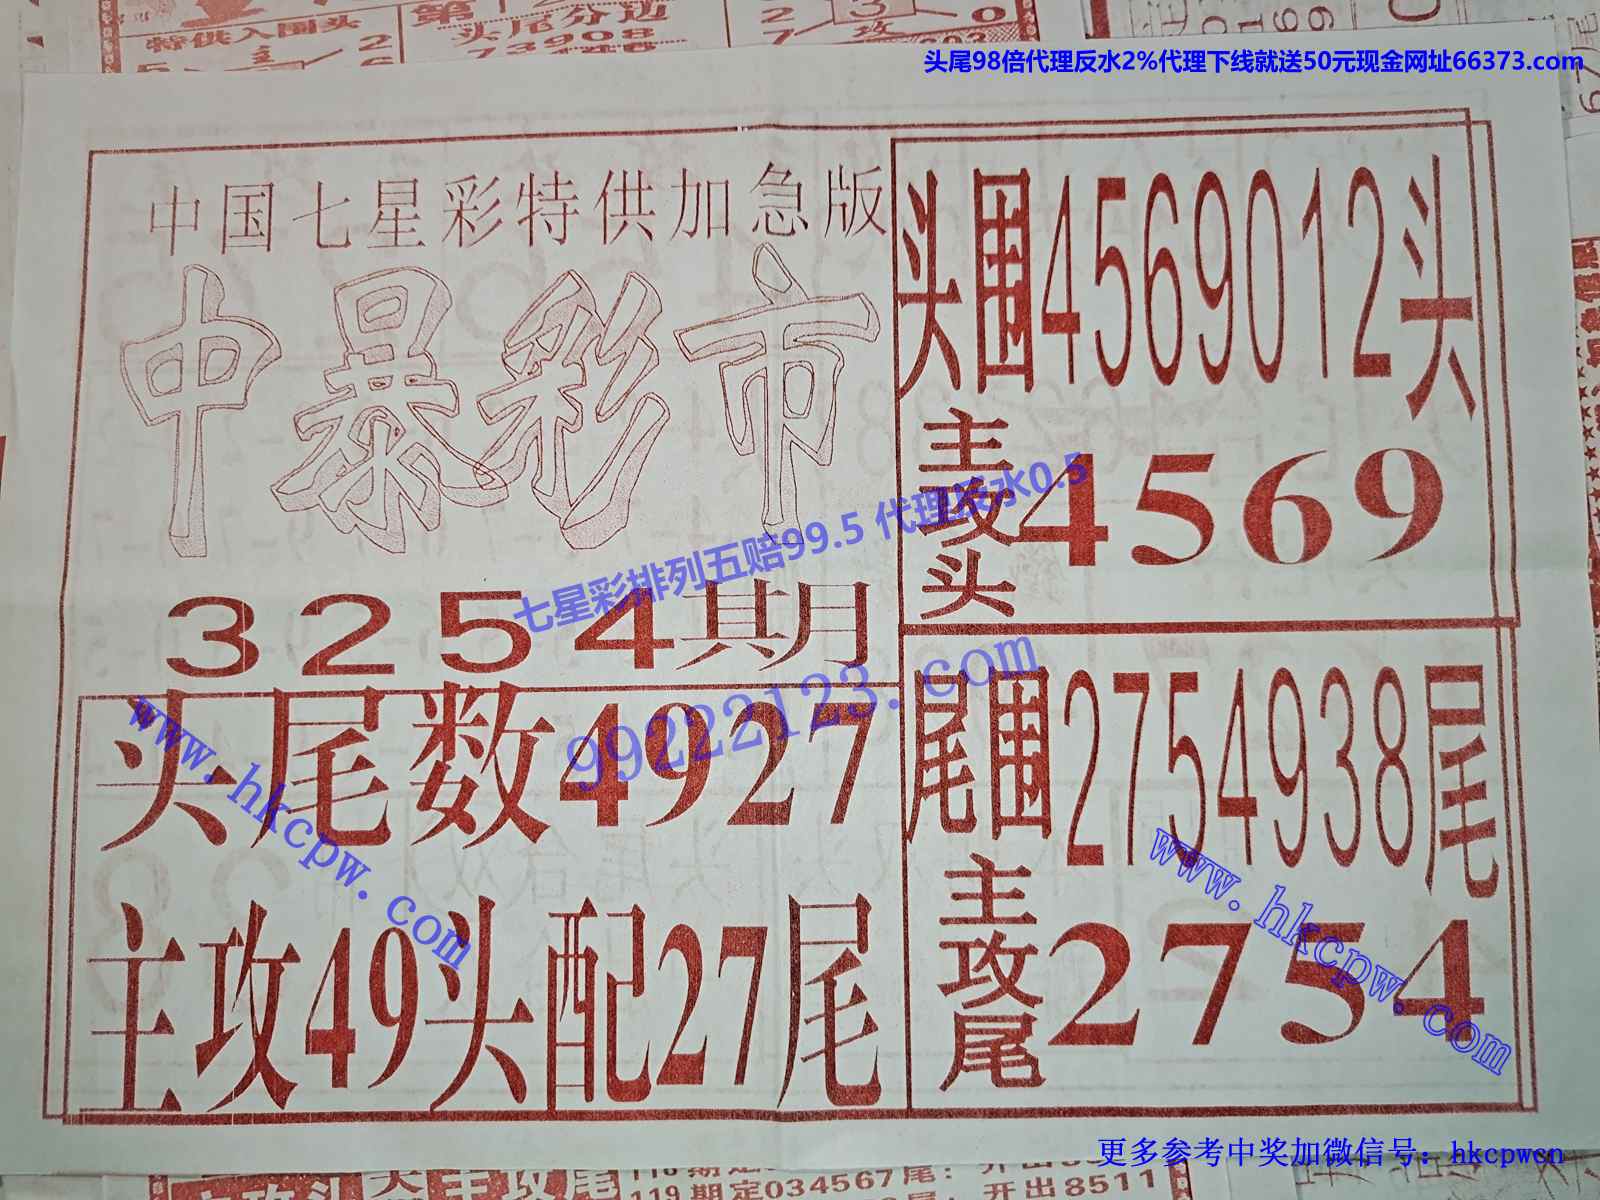 特供入围头
第
头尾分边
73908
头尾98倍代理反水2%代理下线就送50元现金网址66373.com
中国七星彩特供加急版
中暴彩市
3254期
头尾数4927
主攻49头配27尾
头围4569012头
主攻头4569
尾围2754938尾
主攻尾2754
七星彩排列五赔99.5 代理反水0.5
99222123.com
www.hkcpw.com
www.hkcpw.com
更多参考中奖加微信号：hkcpwcn
119期定034567尾：开出8511